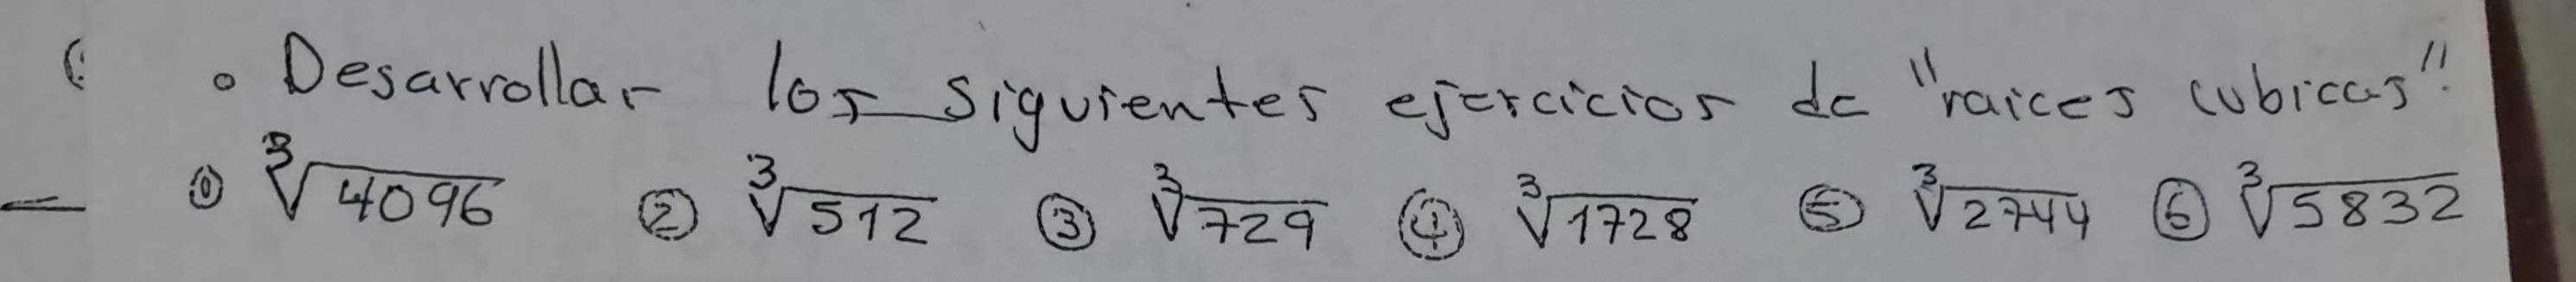 • Desarrollar los siguientes ejercicios de "raices cubicas".
① ∛4096 ② ∛512 ③ ∛729 ④ ∛1728 ⑤ ∛2744 ⑥ ∛5832